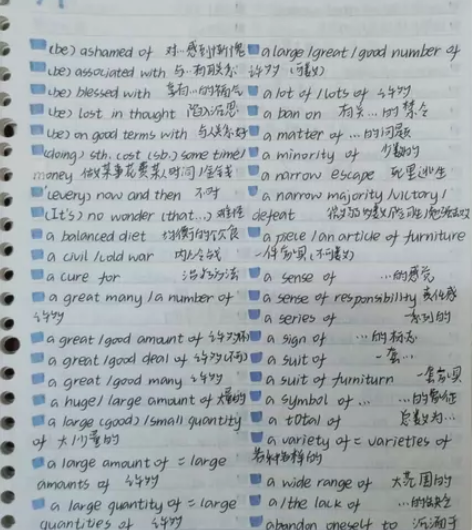 (be) ashamed of 对…感到惭愧
(be) associated with 与…有联系
(be) blessed with 享有…的福气
(be) lost in thought 陷入沉思
(be) on good terms with 与…关系好
(doing) sth. cost (sb.) some time/
money 做某事花费某人时间/金钱
(every) now and then 不时
(It's) no wonder (that...) 难怪
a balanced diet 均衡的饮食
a civil /cold war 内/冷战
a cure for 治…方法
a great many /a number of
许多
a great /good amount of 许多
a great /good deal of 许多
a great /good many 许多
a huge/ large amount of 大量的
a large (good) /small quantity
of 大/少量的
a large amount of = large
amounts of 许多
a large quantity of = large
quantities of 许多
a large /great /good number of
许多 (可数)
a lot of /lots of 许多
a ban on 有关…的禁令
a matter of …的问题
a minority of 少数的
a narrow escape 死里逃生
a narrow majority /victory /
defeat
a piece /an article of furniture
一件家具 (不可数)
a sense of …的感觉
a sense of responsibility 责任感
a series of 一系列的
a sign of …的标志
a suit of 一套…
a suit of furniturn 一套家具
a symbol of … …的象征
a total of 总数为…
a variety of = varieties of
各种各样的
a wide range of 大范围的
a /the lack of …的缺乏
abandon oneself to 沉湎于